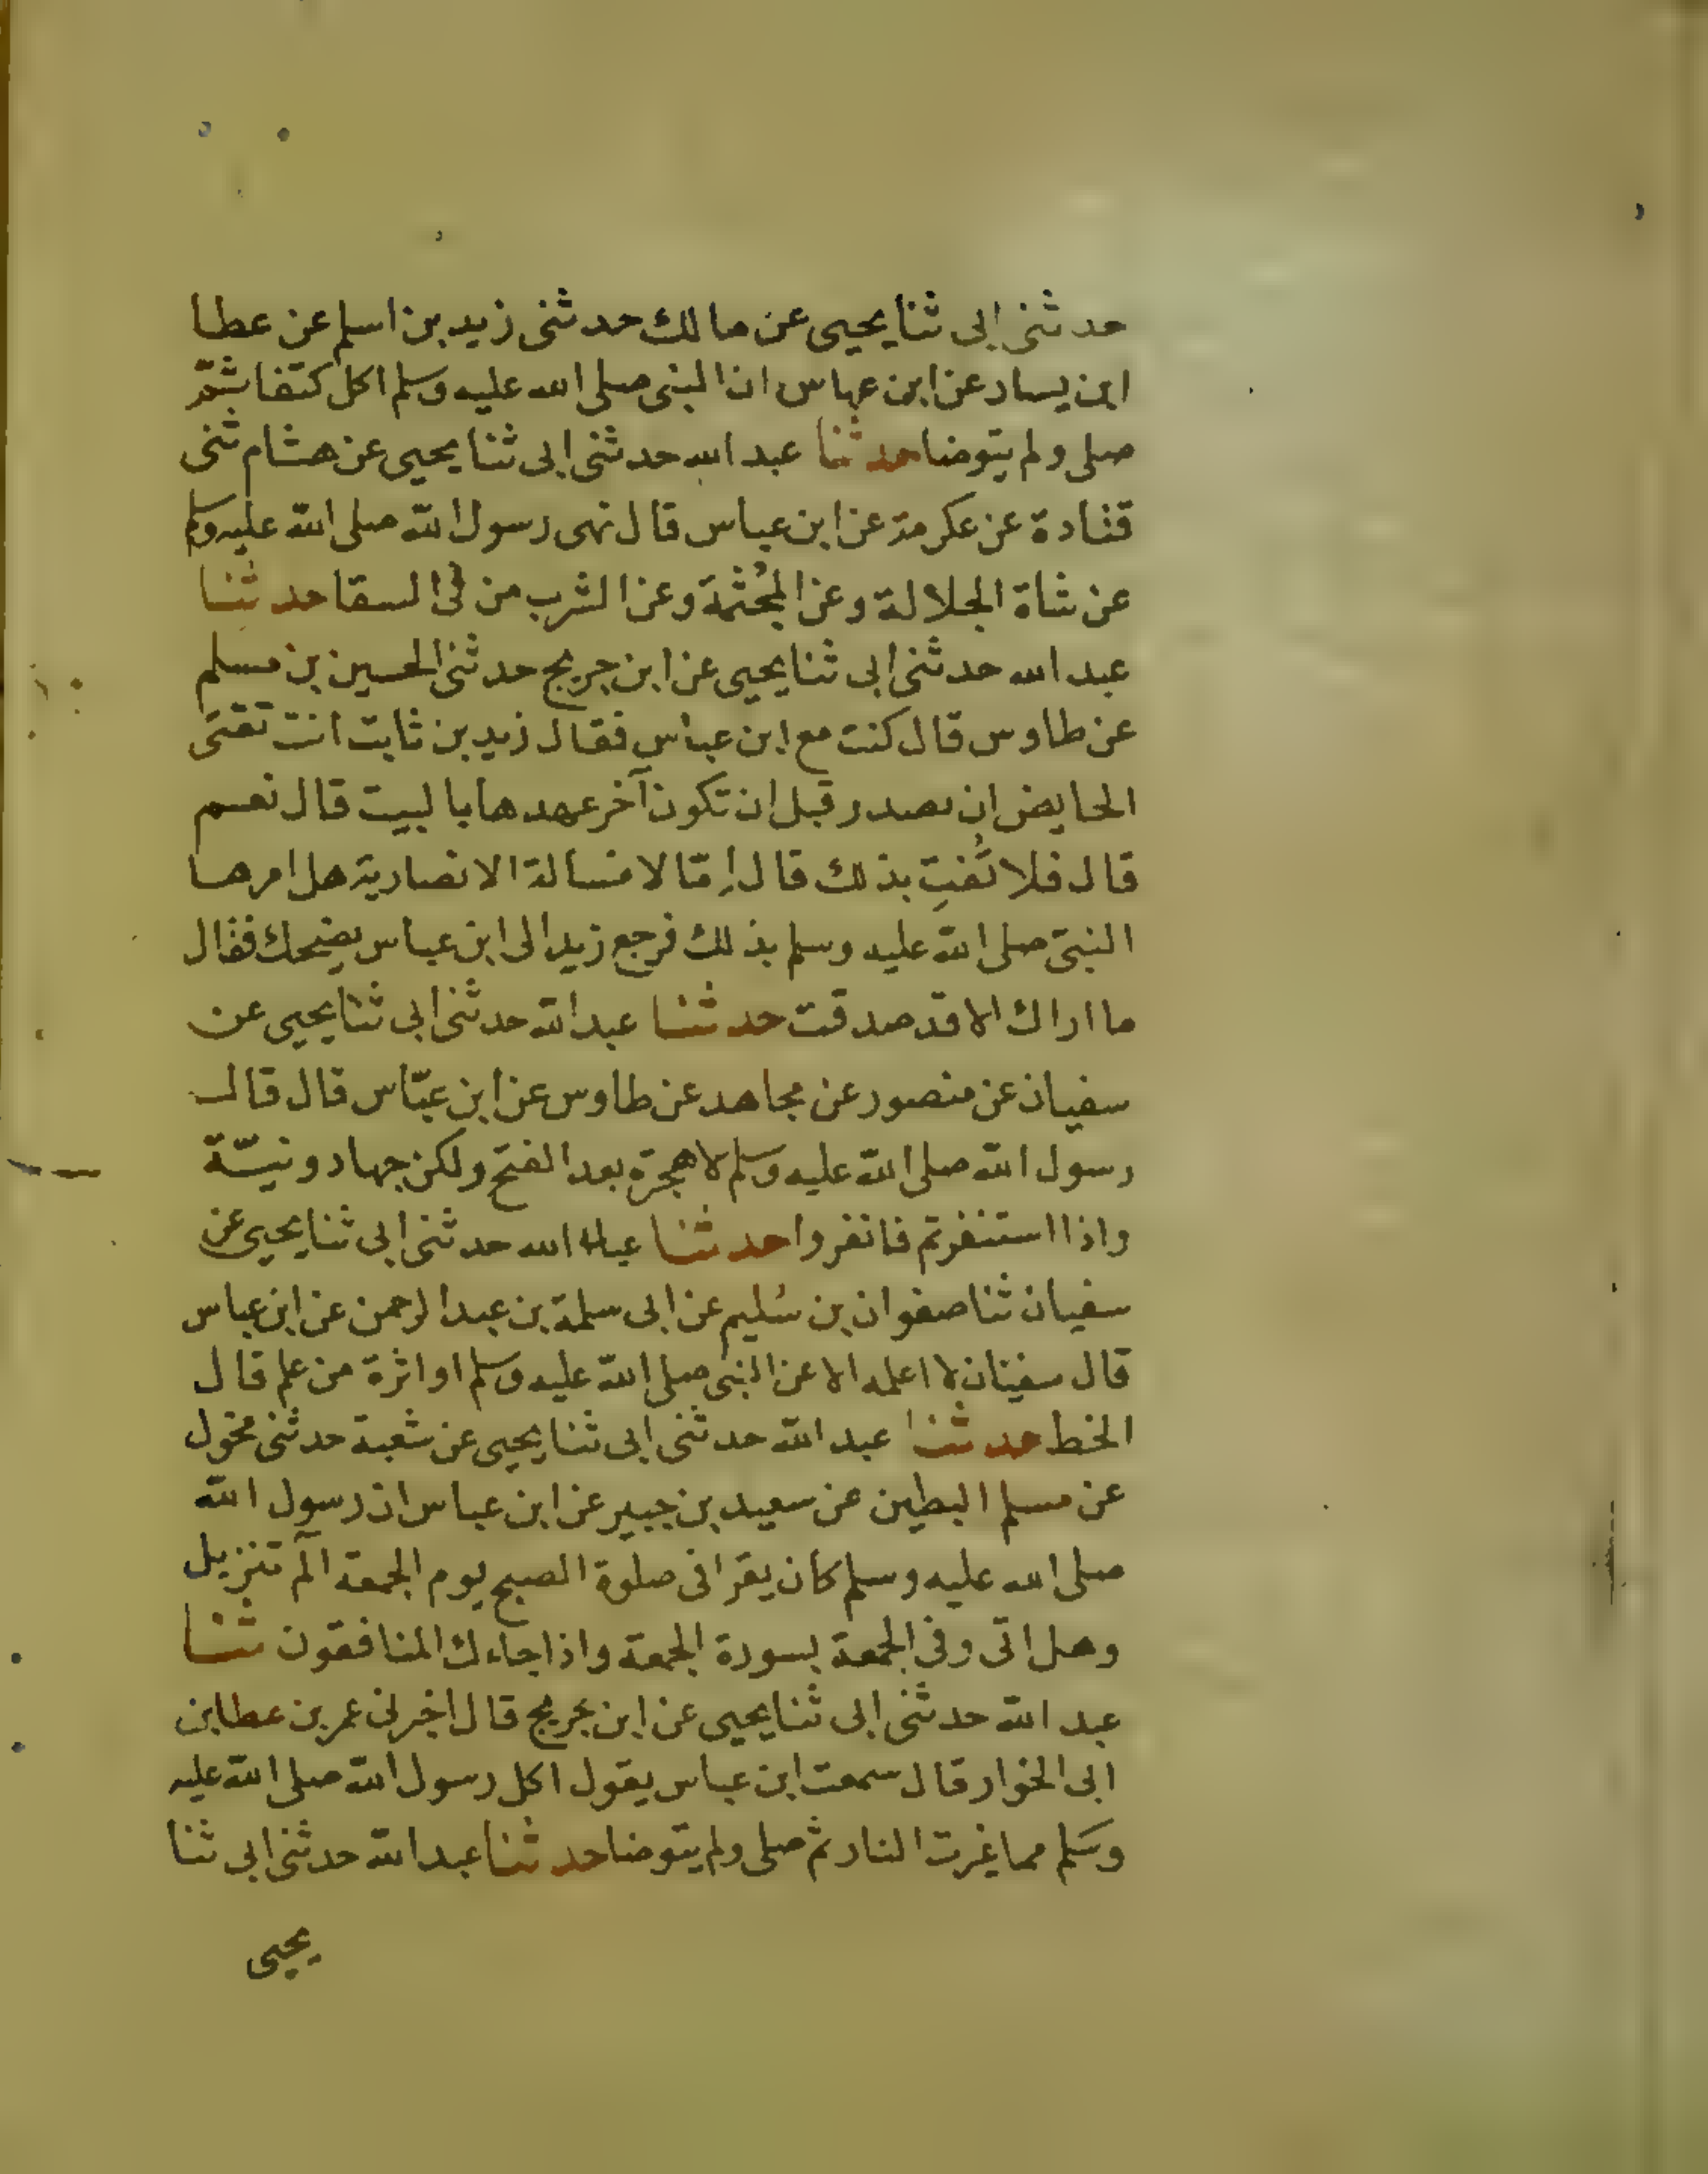 حدثنى ابى ثنا يحيى عن مالك حدثنى زيد بن اسلم عن عطا
ابن يسار عن ابن عباس ان النبى صلى الله عليه وسلم اكل كتفا ثمّ
صلى ولم يتوضا حدثنا عبد الله حدثنى ابى ثنا يحيى عن هشام ثنى
قتادة عن عكرمة عن ابن عباس قال نهى رسول اللّه صلى اللّه عليه وسلم
عن شاة الجلالة وعن المجُثمة وعن الشرب من فى السقا حدثنا
عبد الله حدثنى ابى ثنا يحيى عن ابن جريج حدثنى الحسين بن مسلم
عن طاوس قال كنت مع ابن عباس فقال زيد بن ثابت انت تفتى
الحايض ان تصدر قبل ان تكون آخر عهدها بالبيت قال نعم
قال فلا تُفتِ بذلك قال إمّا لا فسالة الانصارية هل امرها
النبىّ صلى اللّه عليه وسلم بذلك فرجع زيد الى ابن عباس يضحك فقال
ما اراك الا قد صدقت حدثنا عبد اللّه حدثنى ابى ثنا يحيى عن
سفيان عن منصور عن مجاهد عن طاوس عن ابن عبّاس قال قال
رسول اللّه صلى اللّه عليه وسلم لا هجرة بعد الفتح ولكن جهاد ونيّة
واذا استنفرتم فانفروا حدثنا عبد الله حدثنى ابى ثنا يحيى عن
سفيان ثنا صفوان بن سُليم عن ابى سلمة بن عبد الرحمن عن ابن عباس
قال سفيان لا اعلمه الا عن النبى صلى اللّه عليه وسلم او اثرة من علم قال
الخط حدثنا عبد اللّه حدثنى ابى ثنا يحيى عن شعبة حدثنى مخول
عن مسلم البطين عن سعيد بن جبير عن ابن عباس ان رسول اللّه
صلى الله عليه وسلم كان يقرا فى صلوة الصبح يوم الجمعة آلم تنزيل
وهل اتى وفى الجمعة بسورة الجمعة واذا جاءك المنافقون ثنا
عبد اللّه حدثنى ابى ثنا يحيى عن ابن جريج قال اخبرنى عمر بن عطا بن
ابى الخوار قال سمعت ابن عباس يقول اكل رسول اللّه صلى اللّه عليه
وسلم مما غيرت النار ثم صلى ولم يتوضا حدثنا عبد اللّه حدثنى ابى ثنا
يحيى